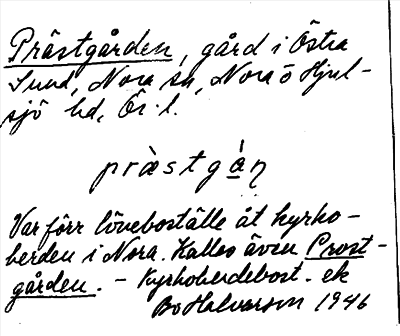 Prästgården, gård i Östra
Sund, Nora sn, Nora o Hjul-
sjö hd, Ör. l.
prästgån
Var förr löneboställe åt kyrko-
herden i Nora. Kallas även Prost-
gården. – Kyrkoherdebost. ek
Bo Halvarson 1946